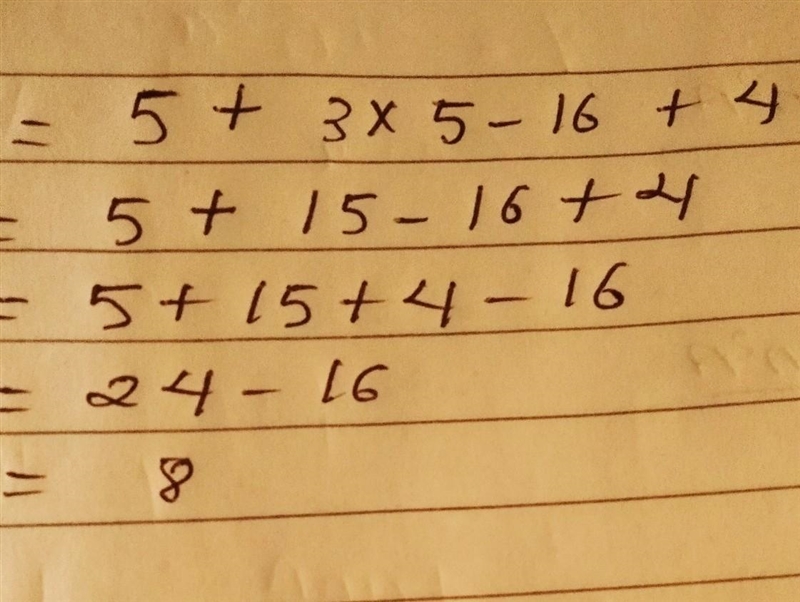 = 5 + 3 × 5 - 16 + 4
= 5 + 15 - 16 + 4
= 5 + 15 + 4 - 16
= 24 - 16
= 8